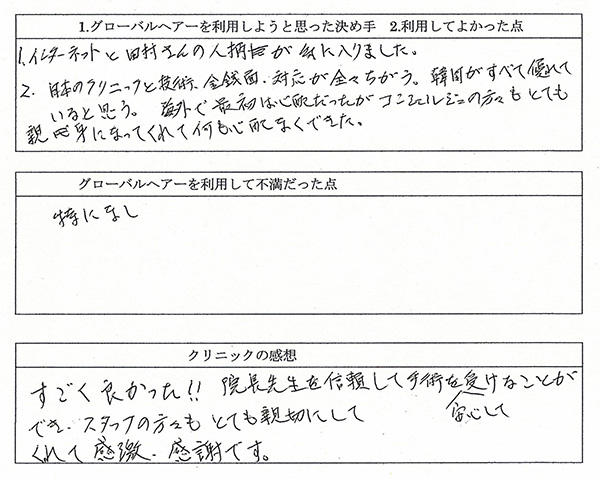 1.グローバルヘアーを利用しようと思った決め手　2.利用してよかった点
1.インターネットと田村さんの人柄が気に入りました。
2. 日本のクリニックと技術、金銭面・対応が全々ちがう。韓国がすべて優れて
いると思う。海外で最初は心配だったがコンシェルジュの方々もとても
親身になってくれて何も心配なくできた。
グローバルヘアーを利用して不満だった点
特になし
クリニックの感想
すごく良かった!! 院長先生を信頼して手術を受けることが
安心して
でき、スタッフの方々もとても親切にして
くれて感激、感謝です。